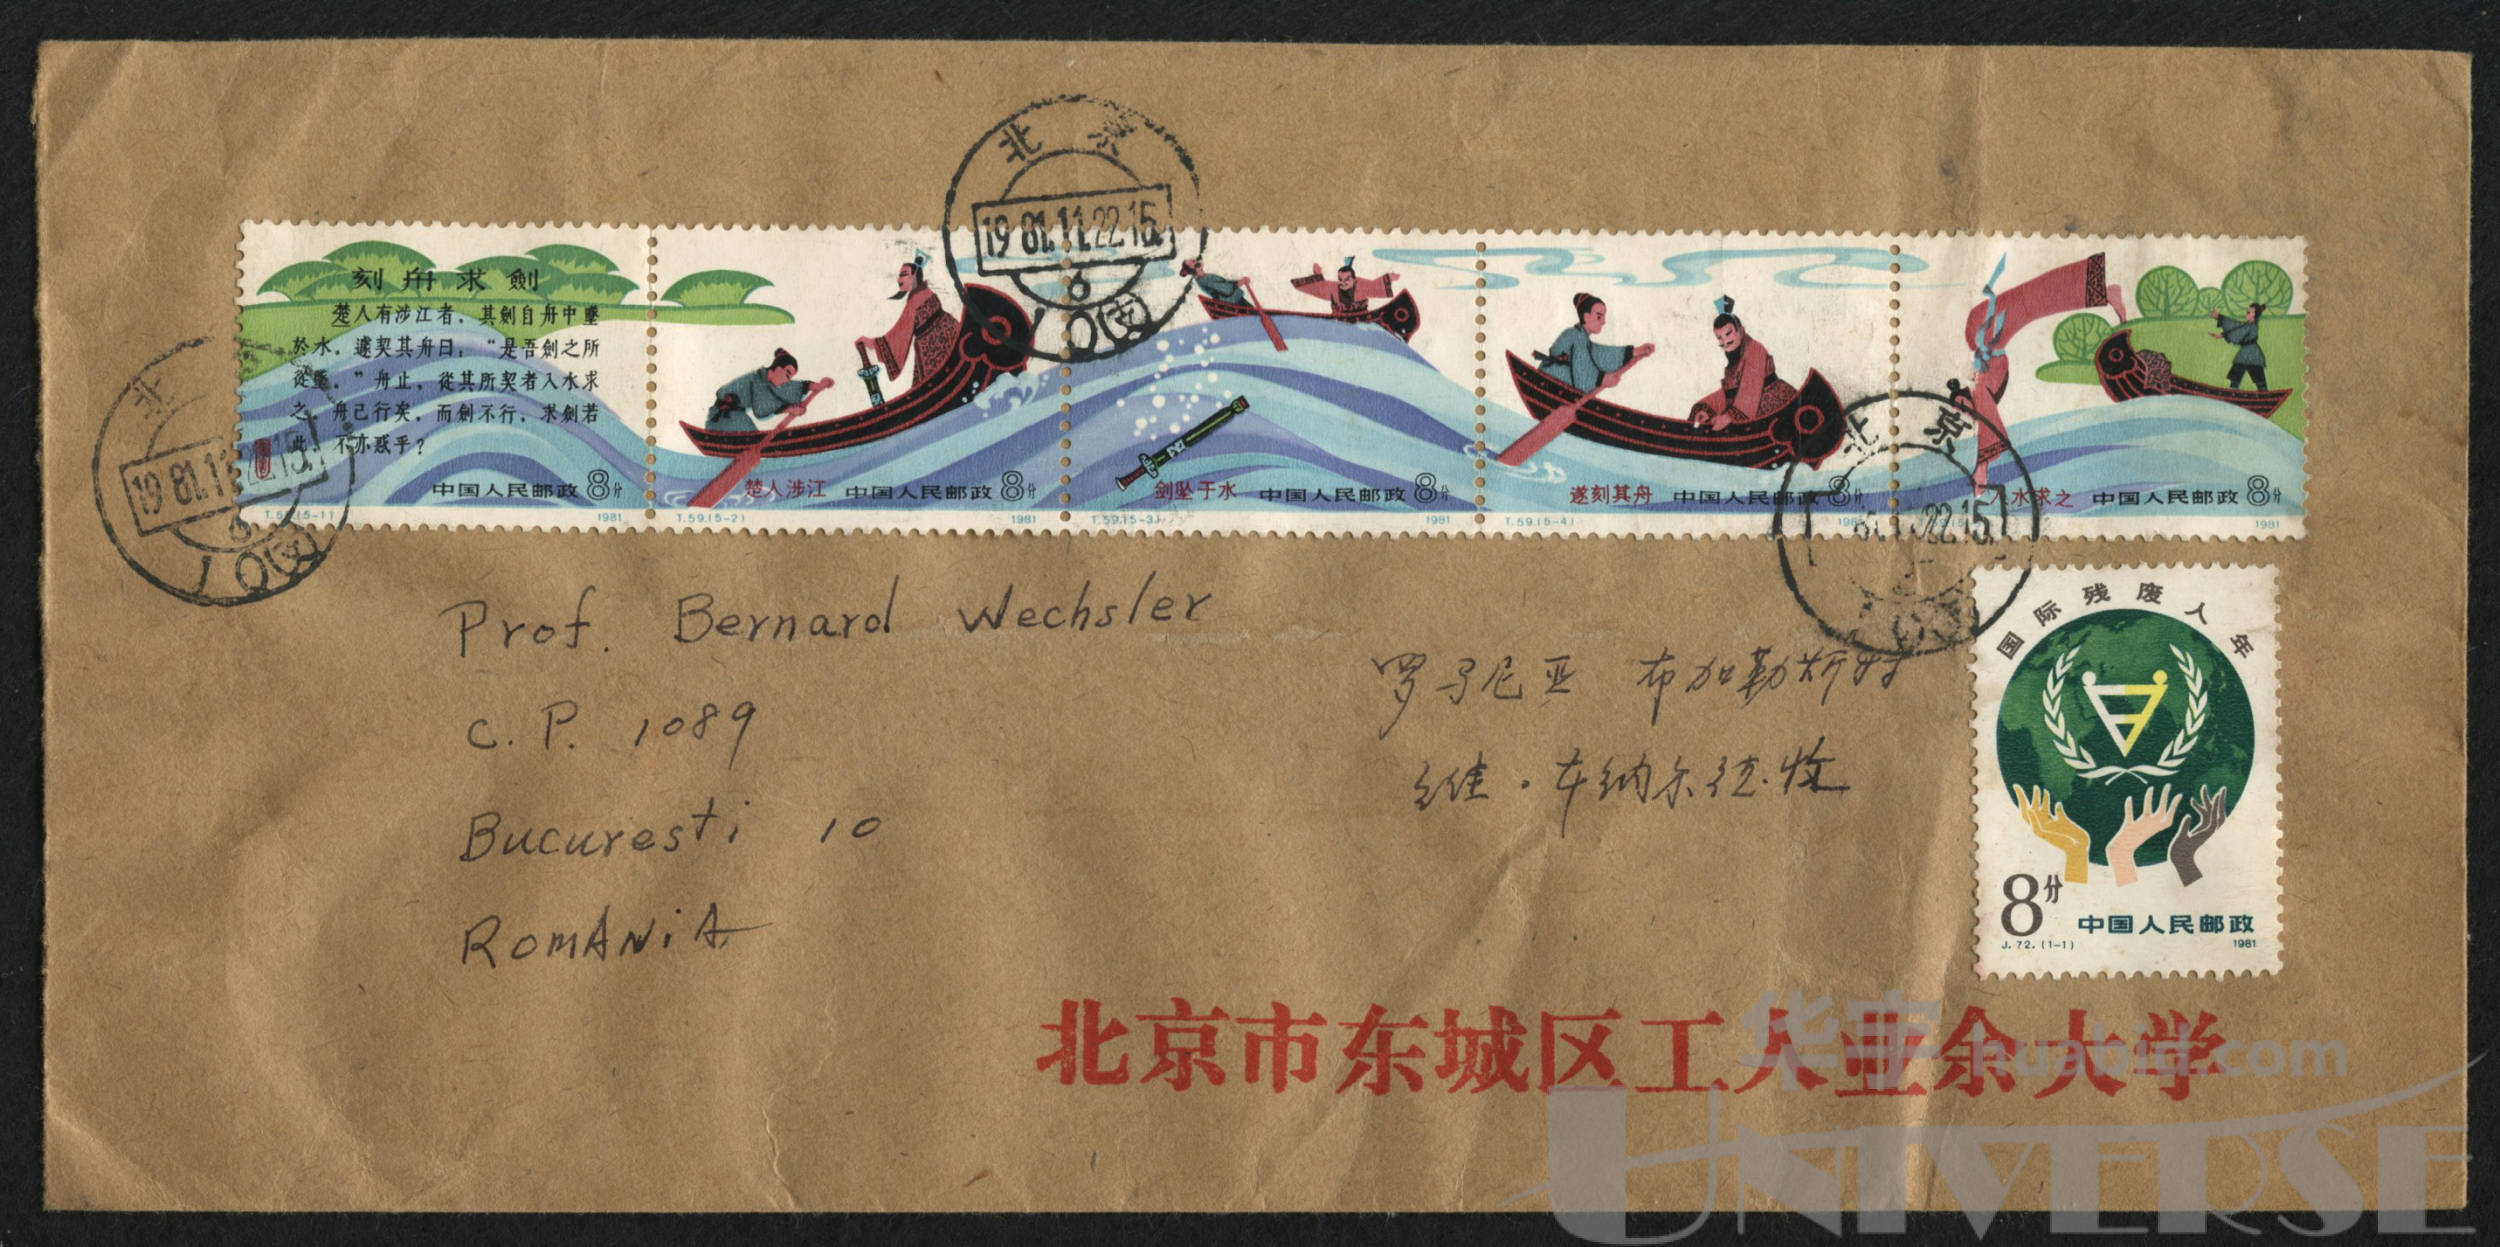 北京
19 81.11.22.15
6
10(支)
刻舟求劍
楚人有涉江者，其劍自舟中墜
於水，遽契其舟曰：“是吾劍之所
從墜。”舟止，從其所契者入水求
之。舟已行矣，而劍不行，求劍若
此，不亦惑乎？
中国人民邮政 8分
T.59.(5-1) 1981
楚人涉江 中国人民邮政 8分
T.59.(5-2) 1981
剑坠于水 中国人民邮政 8分
T.59.(5-3) 1981
遂刻其舟 中国人民邮政 8分
T.59.(5-4) 1981
入水求之 中国人民邮政 8分
1981
北
19 81.11.22.15
6
10(支)
北京
81.11.22.15
国际残废人年
8分
中国人民邮政
J.72.(1-1) 1981
Prof. Bernard Wechsler
C.P. 1089
Bucuresti 10
ROMANiA
罗马尼亚 布加勒斯特
维·布纳尔德 收
北京市东城区工人业余大学
华宇 huabid.com
UNIVERSE